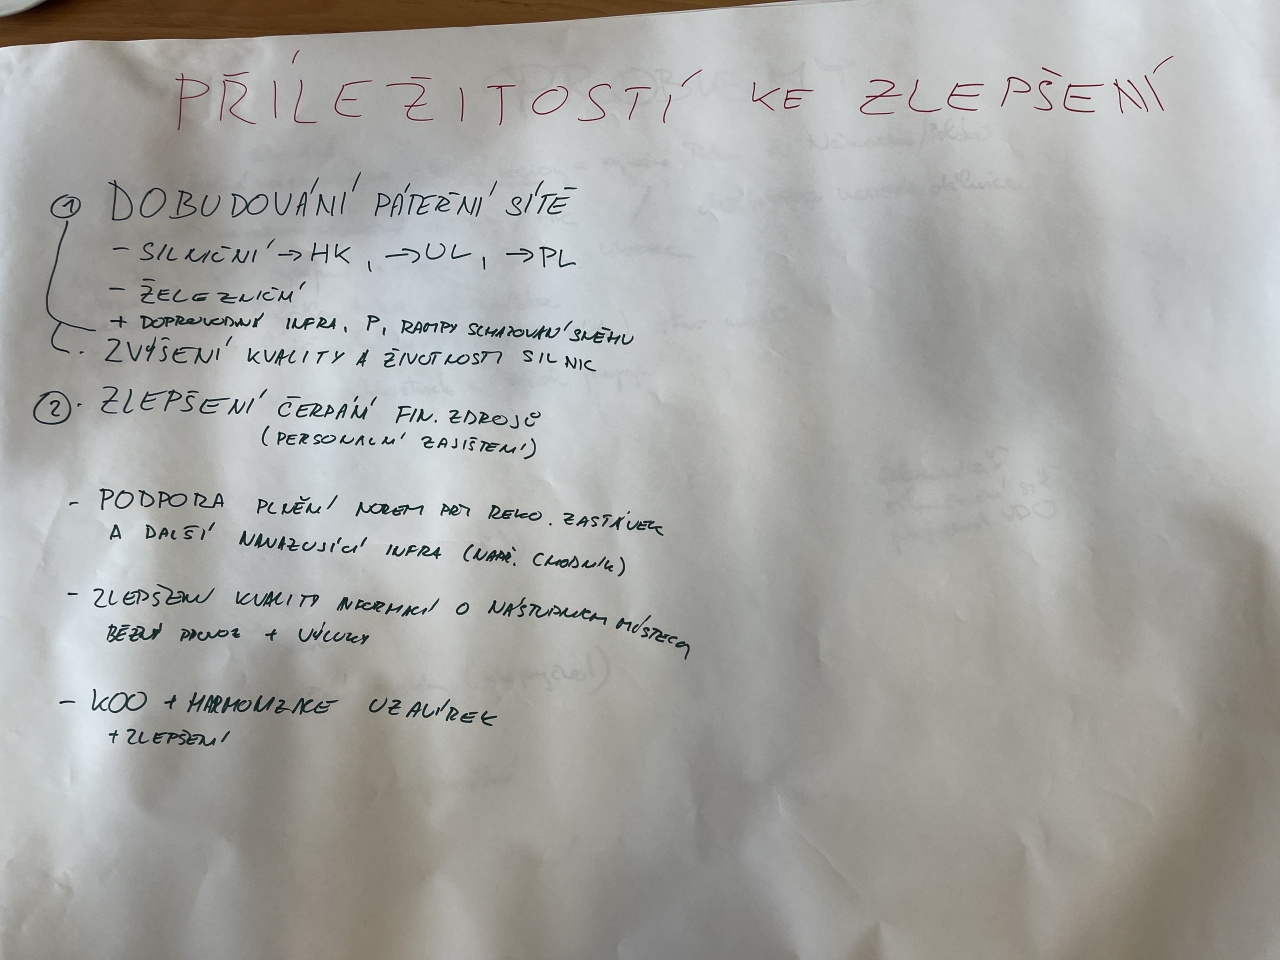 PŘÍLEŽITOSTÍ KE ZLEPŠENÍ
① DOBUDOVÁNÍ PÁTEŘNÍ SÍTĚ
- SILNIČNÍ → HK, → UL, → PL
- ŽELEZNIČNÍ
+ DOPROVODNÍ INFRA, P, RAMPY SCHAZOVÁNÍ SNĚHU
· ZVÝŠENÍ KVALITY A ŽIVOTNOSTI SILNIC
② · ZLEPŠENÍ ČERPÁNÍ FIN. ZDROJŮ
(PERSONALNÍ ZAJIŠTENÍ)
- PODPORA PLNĚNÍ NOREM PŘI REKO. ZASTÁVEK
A DALŠÍ NAVAZUJÍCÍ INFRA (NAPŘ. CHODNÍK)
- ZLEPŠENÍ KVALITY INFORMACÍ O NÁSTUPNÍCH MÍSTECH
BĚŽNÝ PROVOZ + VÝLUKY
- KOO + HARMONIZACE UZAVÍREK
+ ZLEPŠENÍ